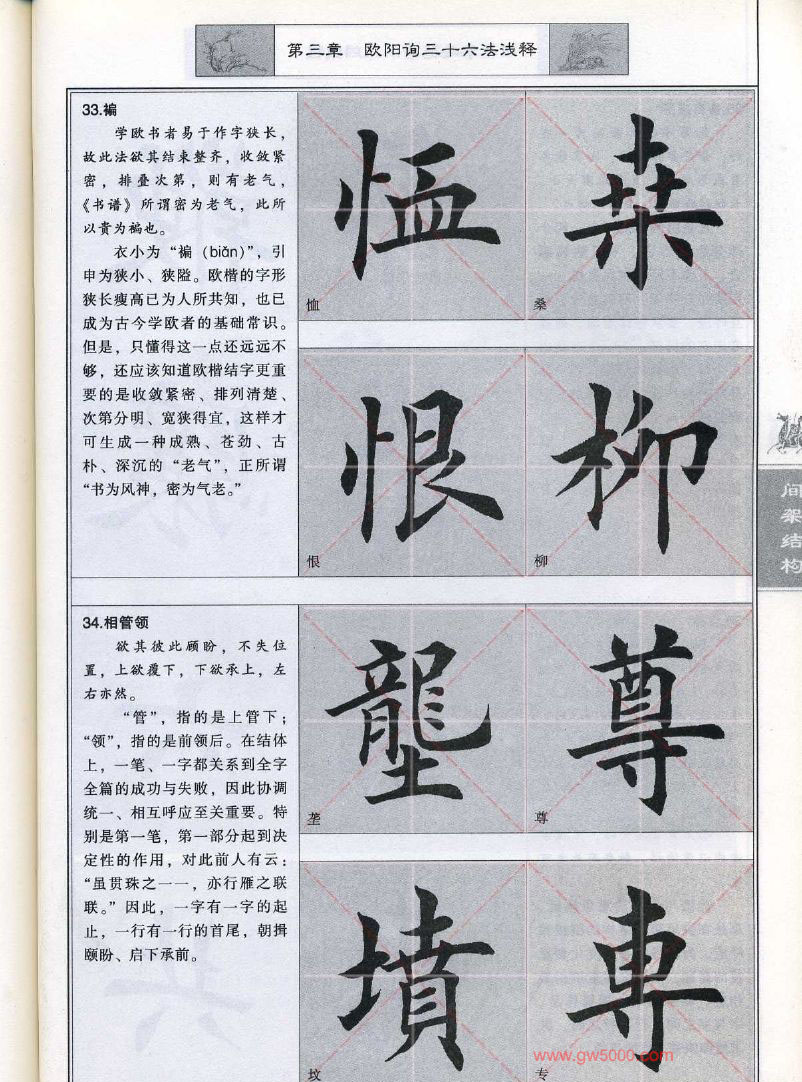 第三章 欧阳询三十六法浅释
33.褊
学欧书者易于作字狭长，
故此法欲其结束整齐，收敛紧
密，排叠次第，则有老气，
《书谱》所谓密为老气，此所
以贵为褊也。
衣小为“褊（biǎn）”，引
申为狭小、狭隘。欧楷的字形
狭长瘦高已为人所共知，也已
成为古今学欧者的基础常识。
但是，只懂得这一点还远远不
够，还应该知道欧楷结字更重
要的是收敛紧密、排列清楚、
次第分明、宽狭得宜，这样才
可生成一种成熟、苍劲、古
朴、深沉的“老气”，正所谓
“书为风神，密为气老。”
恤
桑
恤
桒
恨
柳
恨
柳
34.相管领
欲其彼此顾盼，不失位
置，上欲覆下，下欲承上，左
右亦然。
“管”，指的是上管下；
“领”，指的是前领后。在结体
上，一笔、一字都关系到全字
全篇的成功与失败，因此协调
统一、相互呼应至关重要。特
别是第一笔，第一部分起到决
定性的作用，对此前人有云：
“虽贯珠之一一，亦行雁之联
联。”因此，一字有一字的起
止，一行有一行的首尾，朝揖
顾盼、启下承前。
壟
尊
垄
尊
墳
専
坟
专
间架结构
www.gw5000.com